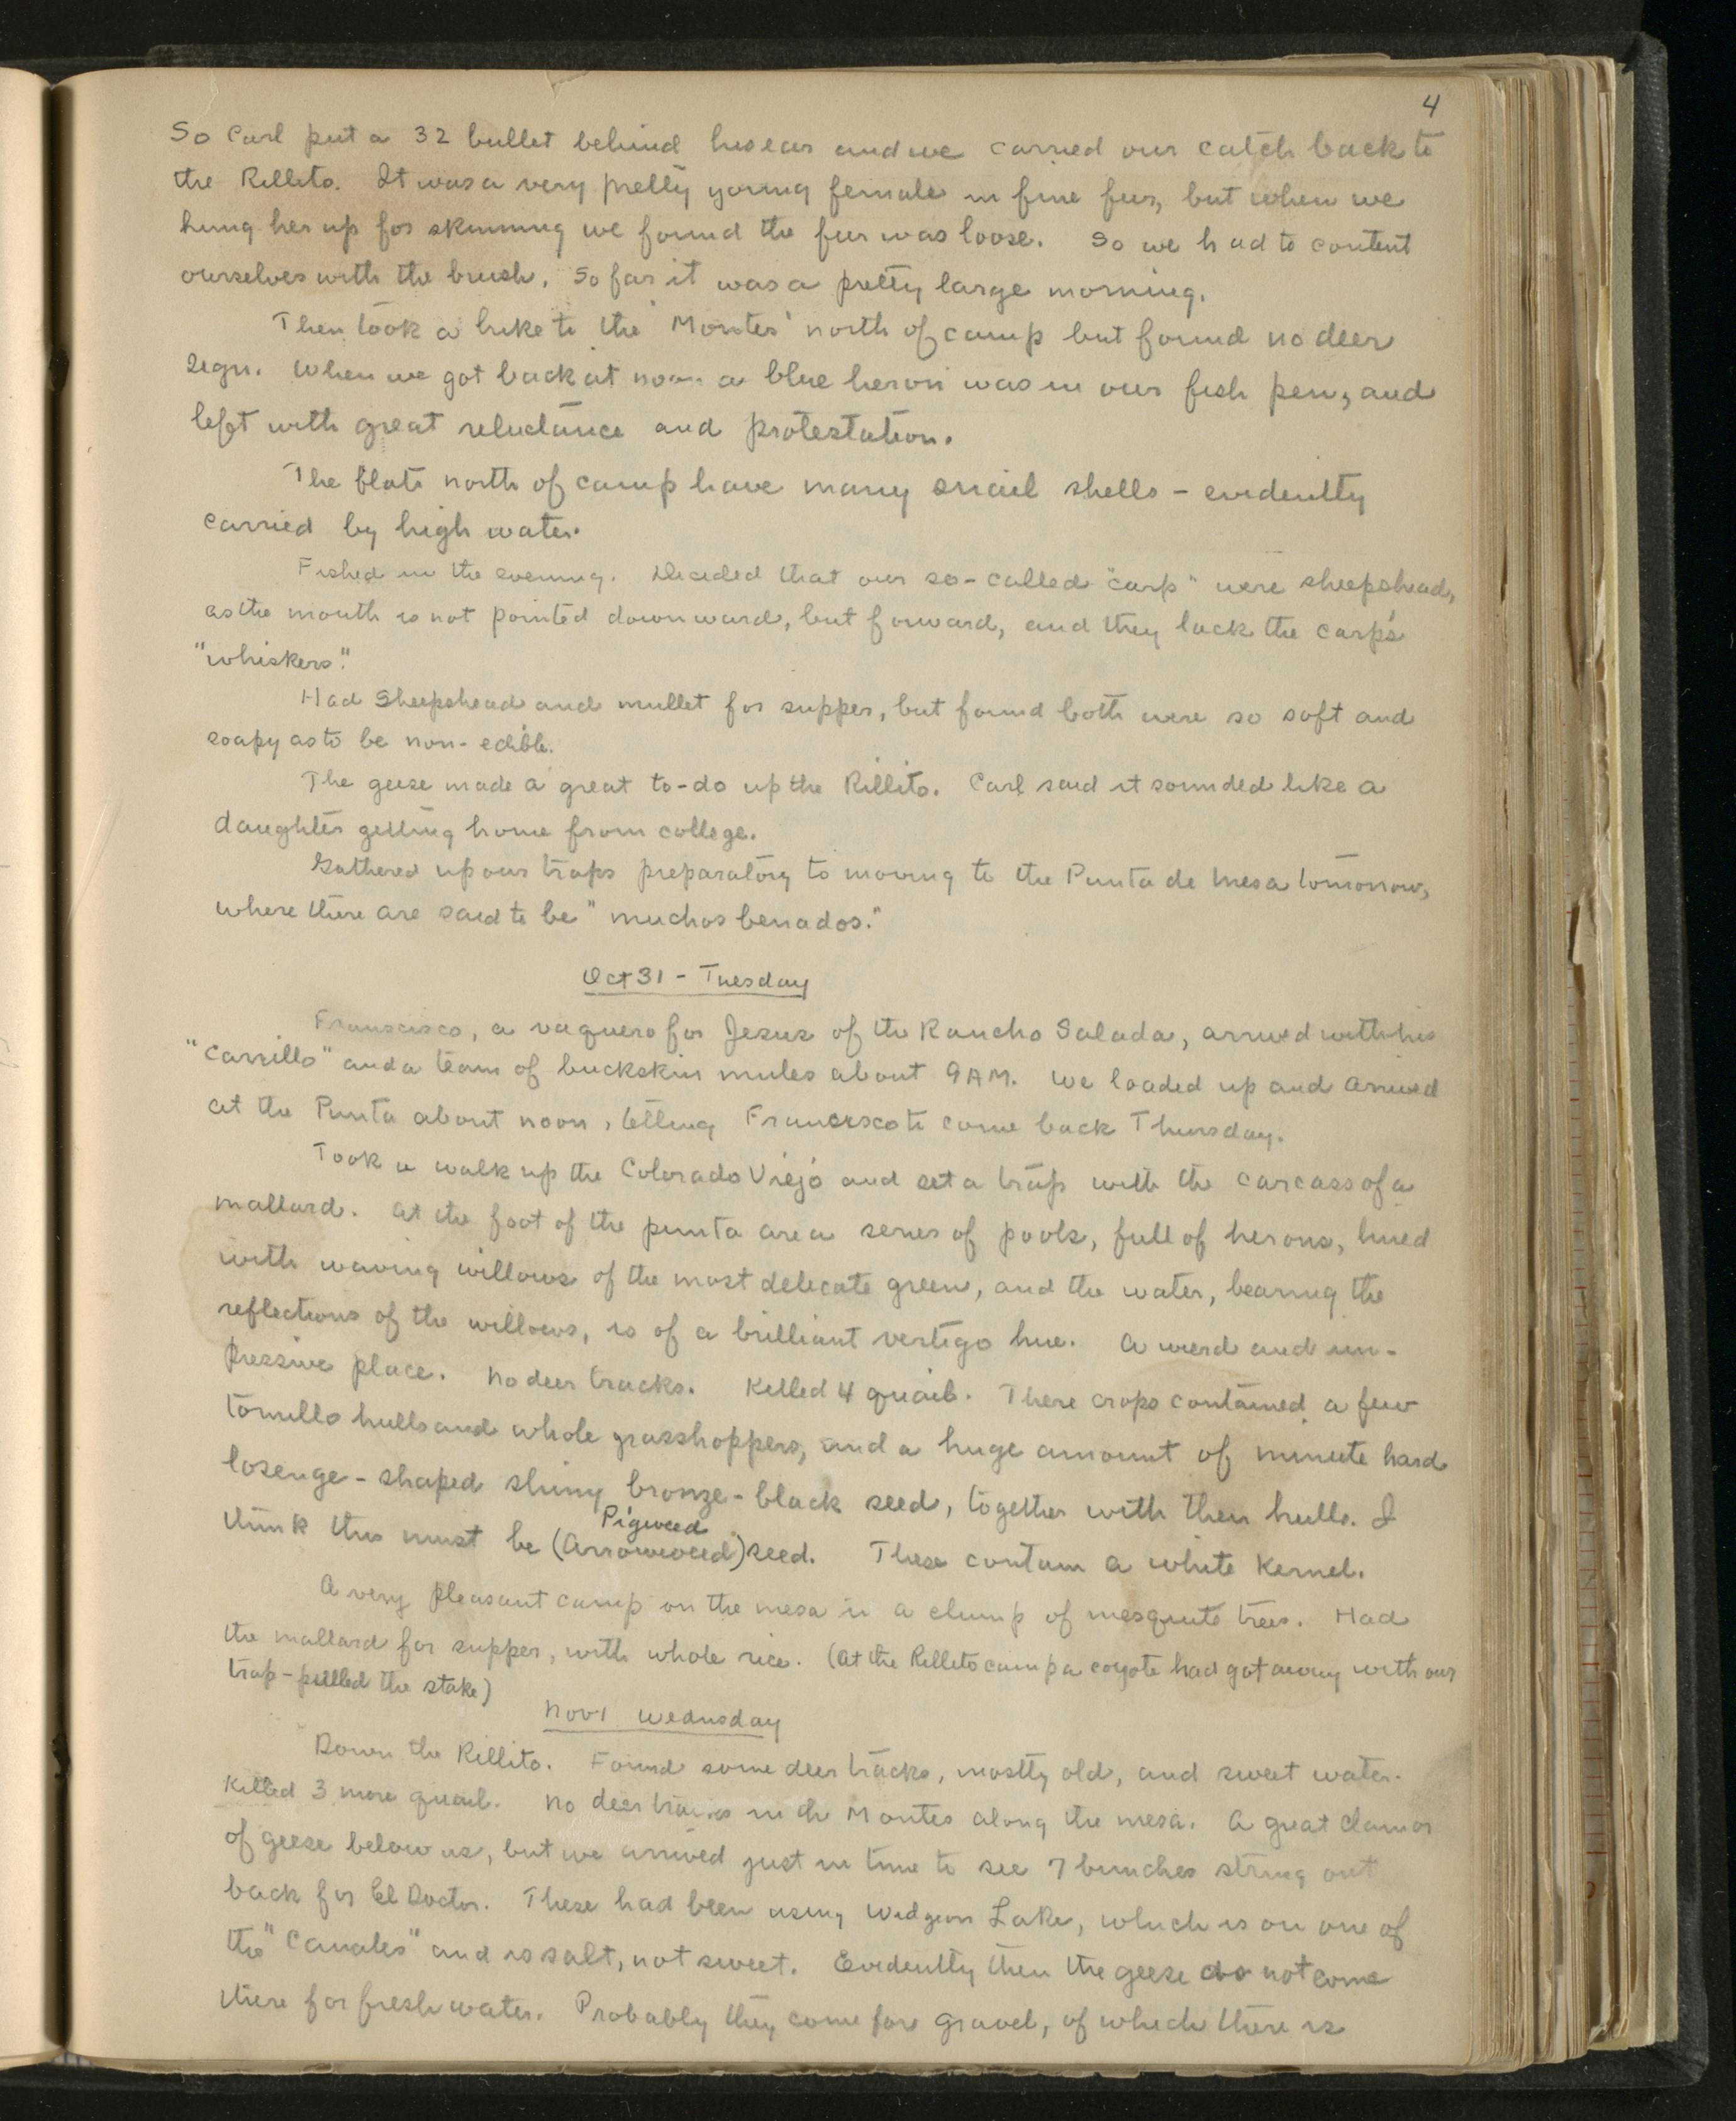 4
So Carl put a 32 bullet behind his ear and we carried our catch back to
the Rillito. It was a very pretty young female in fine fur, but when we
hung her up for skinning we found the fur was loose. So we had to content
ourselves with the brush. So far it was a pretty large morning.
Then took a hike to the "Montes" north of camp but found no deer
sign. When we got back at noon a blue heron was in our fish pen, and
left with great reluctance and protestation.
The flats north of camp have many snail shells - evidently
carried by high water.
Fished in the evening. Decided that our so-called "carp" were sheepshead,
as the mouth is not pointed downward, but forward, and they lack the carp's
"whiskers."
Had Sheepshead and mullet for supper, but found both were so soft and
soapy as to be non-edible.
The geese made a great to-do up the Rillito. Carl said it sounded like a
daughter getting home from college.
Gathered up our traps preparatory to moving to the Punta de Mesa tomorrow,
where there are said to be "muchos benados."
Oct 31 - Tuesday
Franscisco, a vaquero for Jesus of the Rancho Salada, arrived with his
"Carrillo" and a team of buckskin mules about 9 AM. We loaded up and arrived
at the Punta about noon, telling Francisco to come back Thursday.
Took a walk up the Colorado Viejo and set a trap with the carcass of a
mallard. At the foot of the punta are a series of pools, full of herons, lined
with waving willows of the most delicate green, and the water, bearing the
reflections of the willows, is of a brilliant vertigo hue. A wierd and im-
pressive place. No deer tracks. Killed 4 quail. There crops contained a few
tornillo hulls and whole grasshoppers, and a huge amount of minute hard
losenge-shaped shiny bronze-black seed, together with their hulls. I
think this must be (Arrowweed) Pigweed seed. These contain a white kernel.
A very pleasant camp on the mesa in a clump of mesquite trees. Had
the mallard for supper, with whole rice. (At the Rillito camp a coyote had got away with our
trap - pulled the stake)
Nov 1 Wednesday
Down the Rillito. Found some deer tracks, mostly old, and sweet water.
Killed 3 more quail. No deer tracks in the Montes along the mesa. A great clamor
of geese below us, but we arrived just in time to see 7 bunches string out
back for El Doctor. These had been using Widgeon Lake, which is on one of
the "Canales" and is salt, not sweet. Evidently then the geese do not come
there for fresh water. Probably they come for gravel, of which there is